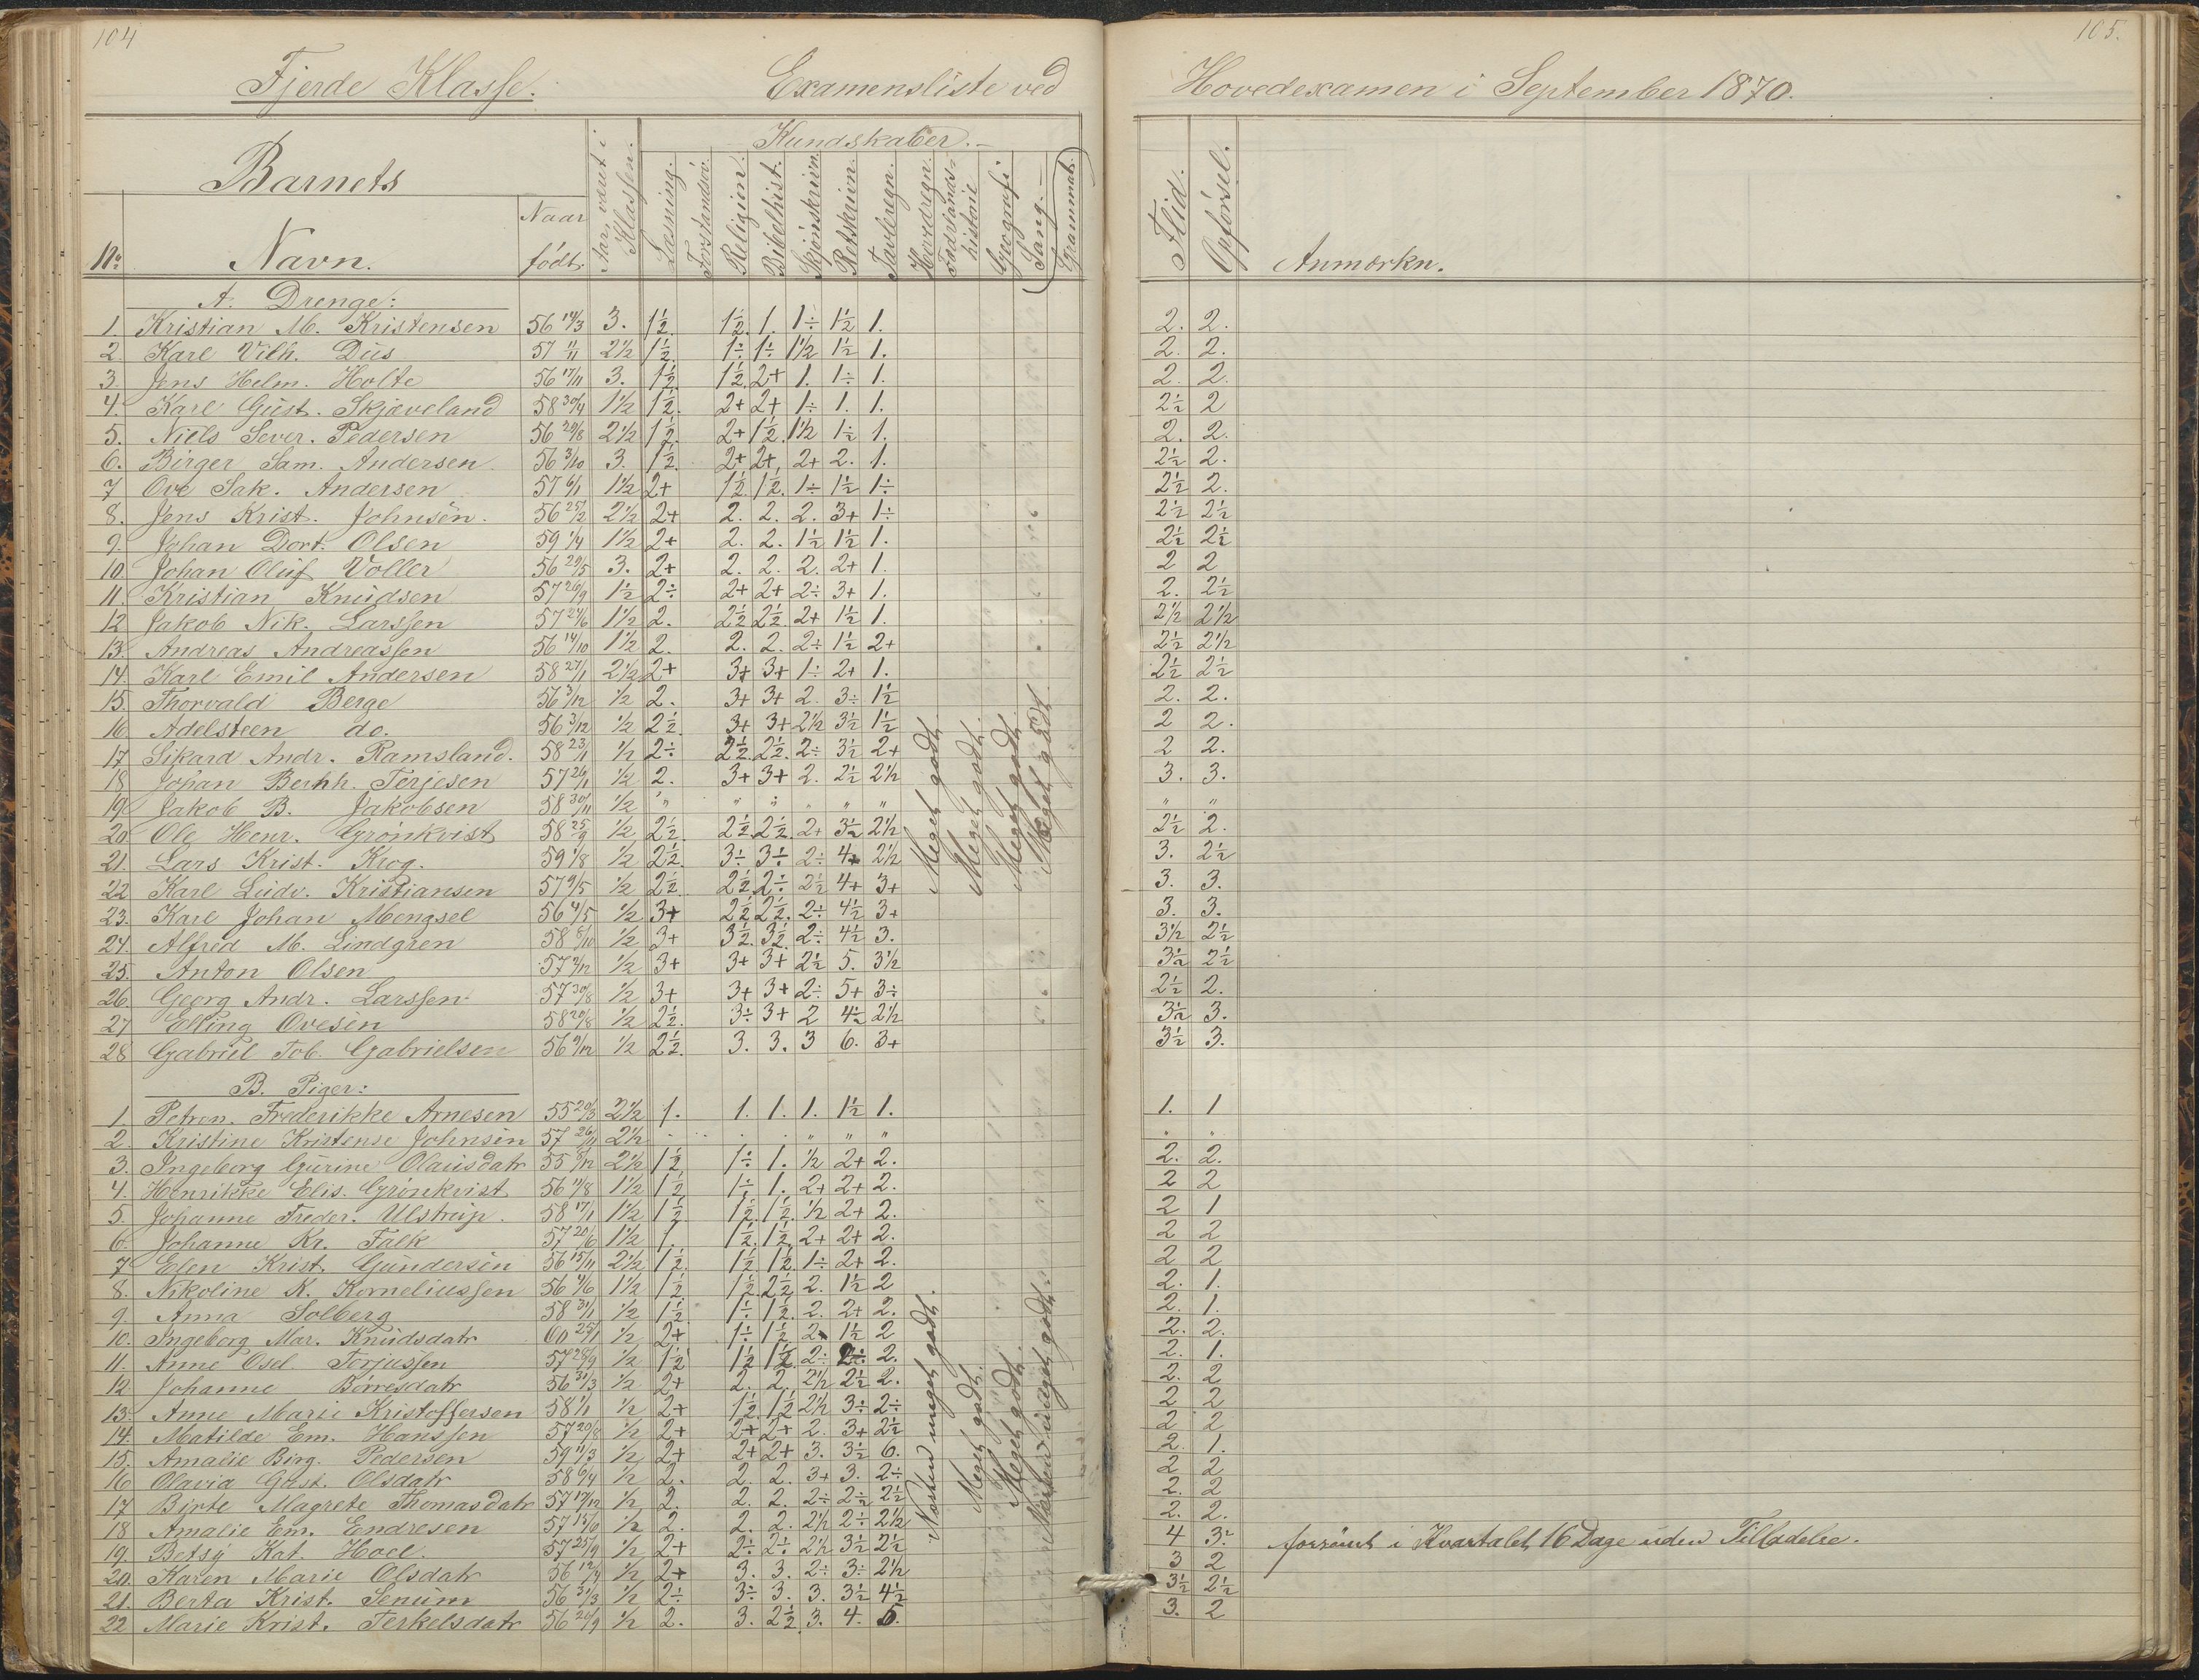 104
105.
Fjerde Klasse. Examensliste ved Hovedexamen i September 1870.
Barnets
Kundskaber.
No Navn. Naar født. Aar, været i Klassen. Læsning. Forstandsöv. Religion. Bibelhist. Skjönskrivn. Retskrivn. Tavleregn. Hovedregn. Fædrelandshistorie Geografi Sang. (Grammat.) Flid. Opførsel. Anmærkn.
A. Drenge:
1. Kristian M. Kristensen 56 14/3 3. 1½. 1½. 1. 1÷ 1½ 1. 2. 2.
2. Karl Vilh. Dus 57 11/11 2½ 1½. 1÷ 1÷ 1½ 1½ 1. 2. 2.
3. Jens Helm. Holte 56 17/11 3. 1½. 1½. 2+ 1. 1÷ 1. 2. 2.
4. Karl Gust. Skjæveland 58 30/4 1½ 1½. 2+ 2+ 1÷ 1. 1. 2½ 2
5. Niels Sever. Pedersen 56 29/8 2½ 1½. 2+ 1½. 1½ 1½ 1. 2. 2.
6. Birger Sam. Andersen 56 3/10 3. 1½. 2+ 2+ 2+ 2. 1. 2½ 2.
7 Ove Sak. Andersen 57 6/1 1½ 2+ 1½. 1½. 1÷ 1½ 1÷ 2½ 2.
8. Jens Krist. Johnsen. 56 25/2 2½ 2+ 2. 2. 2. 3+ 1÷ 2½ 2½
9. Johan Dort. Olsen 59 1/4 1½ 2+ 2. 2. 1½ 1½ 1. 2½ 2½
10. Johan Oluf Voller 56 29/5 3. 2+ 2. 2. 2. 2+ 1. 2 2
11. Kristian Knudsen 57 26/9 1½ 2÷ 2+ 2+ 2÷ 3+ 1. 2. 2½
12 Jakob Nik. Larssen 57 24/6 1½ 2. 2½ 2½. 2+ 1½ 1. 2½ 2½
13. Andreas Andreassen 56 14/10 1½ 2. 2. 2. 2÷ 1½ 2+ 2½ 2½
14. Karl Emil Andersen 58 27/1 2½ 2+ 3+ 3+ 1÷ 2+ 1. 2½ 2½
15. Thorvald Berge 56 3/12 ½ 2. 3+ 3+ 2. 3÷ 1½ 2. 2.
16. Adelsteen do. 56 3/12 ½ 2½. 3+ 3+ 2½ 3½ 1½ 2 2.
17. Sikard Andr. Ramsland. 58 23/1 ½ 2÷ 2½. 2½. 2÷ 3½ 2+ 2 2.
18. Johan Bernh. Terjesen 57 26/1 ½ 2. 3+ 3+ 2. 2½ 2½ 3. 3.
19. Jakob B. Jakobsen 58 30/11 ½ " " " " " " " "
20. Ole Henr. Grønkvist 58 25/9 ½ 2½. 2½. 2½. 2+ 3½ 2½ 2½ 2.
21. Lars Krist. Krog. 59 1/8 ½ 2½. 3÷ 3÷ 2÷ 4+ 2½ 3. 2½
22 Karl Ludv. Kristiansen 57 9/5 ½ 2½. 2½. 2÷ 2½ 4+ 3+ 3. 3.
23. Karl Johan Mongsel 56 4/5 ½ 3+ 2½ 2½. 2÷ 4½ 3+ 3. 3.
24. Alfred M. Lindgren 58 8/10 ½ 3+ 3½. 3½. 2÷ 4½ 3. 3½ 2½
25. Anton Olsen 57 4/12 ½ 3+ 3+ 3+ 2½ 5. 3½ 3½ 2½
26. Georg Andr. Larssen. 57 30/8 ½ 3+ 3+ 3+ 2÷ 5+ 3÷ 2½ 2.
27 Elling Ovesen 58 20/8 ½ 2½. 3÷ 3+ 2 4½ 2½ 3½ 3.
28 Gabriel Tob. Gabrielsen 56 9/12 ½ 2½. 3. 3. 3 6. 3+ 3½ 3.
Meget godt. Meget godt. Meget godt. Meget godt
B. Piger:
1. Petron. Frederikke Arnesen 55 20/3 2½ 1. 1. 1. 1. 1½ 1. 1. 1
2. Kristine Kristense Johnsen 57 26/11 2½ " " " " " " " "
3. Ingeborg Gurine Olausdatr 55 8/12 2½ 1½ 1÷ 1. ½ 2+ 2. 2. 2.
4. Henrikke Elis. Grønkvist 56 11/8 1½ 1½ 1÷ 1. 2+ 2+ 2. 2 2
5. Johanne Freder. Ulstrup. 58 17/1 1½ 1½. 1½. 1½. ½ 2+ 2. 2 1
6. Johanne Kr. Falk 57 20/6 1½ 1. 1½. 1½. 2+ 2+ 2. 2 2
7 Elen Krist. Gundersen 56 15/11 2½ 1½. 1½ 1½. 1÷ 2+ 2. 2 2
8. Nikoline K. Korneliussen 56 4/6 1½ 1½ 1½. 2½ 2. 1½ 2 2. 1.
9. Anna Solberg 58 31/1 ½ 1½. 1÷ 1½. 2. 2+ 2. 2. 1.
10. Ingeborg Mar. Knudsdatr 60 25/1 ½ 2+ 1÷ 1½ 2+ 1½ 2 2. 2.
11. Anne Osel Torjussen 57 28/9 ½ 1½ 1½ 1½ 2÷ 2÷ 2. 2. 1.
12 Johanne Børresdatr 56 31/3 ½ 2+ 2. 2. 2½ 2½ 2. 2. 2
13. Anne Marie Kristoffersen 58 1/1 ½ 2+ 1½ 1½ 2½ 3÷ 2÷ 2 2
14. Matilde Em. Hanssen 57 20/8 ½ 2+ 2+ 2+ 2. 3+ 2½ 2 2
15. Amalie Birg. Pedersen 59 11/3 ½ 2+ 2+ 2+ 3. 3½ 6. 2. 1.
16 Olavia Gust. Olsdatr 58 6/4 ½ 2. 2. 2. 3+ 3. 2÷ 2 2
17 Birte Magrete Thomasdatr 57 17/12 ½ 2. 2. 2. 2÷ 2½ 2½ 2. 2
18 Amalie Em. Endresen 57 15/6 ½ 2. 2. 2. 2½ 2÷ 2½ 2. 2.
19. Betsy Kat. Hoel. 57 25/9 ½ 2+ 2÷ 2÷ 2½ 3½ 2½ 4 3÷ forsømt i Kvartalet 16 Dage uden Tilladelse.
20. Karen Marie Olsdatr 56 12/4 ½ 2+ 3. 3. 2÷ 3÷ 2½ 3 2
21. Berta Krist. Senum 56 31/3 ½ 2÷ 3÷ 3. 3. 3½ 4½ 3½ 2½
22 Marie Krist. Terkelsdatr 56 24/9 ½ 2. 3. 2½. 3. 4. 5. 3. 2
Næsten meget godt. Meget godt. Meget godt. Næsten meget godt.